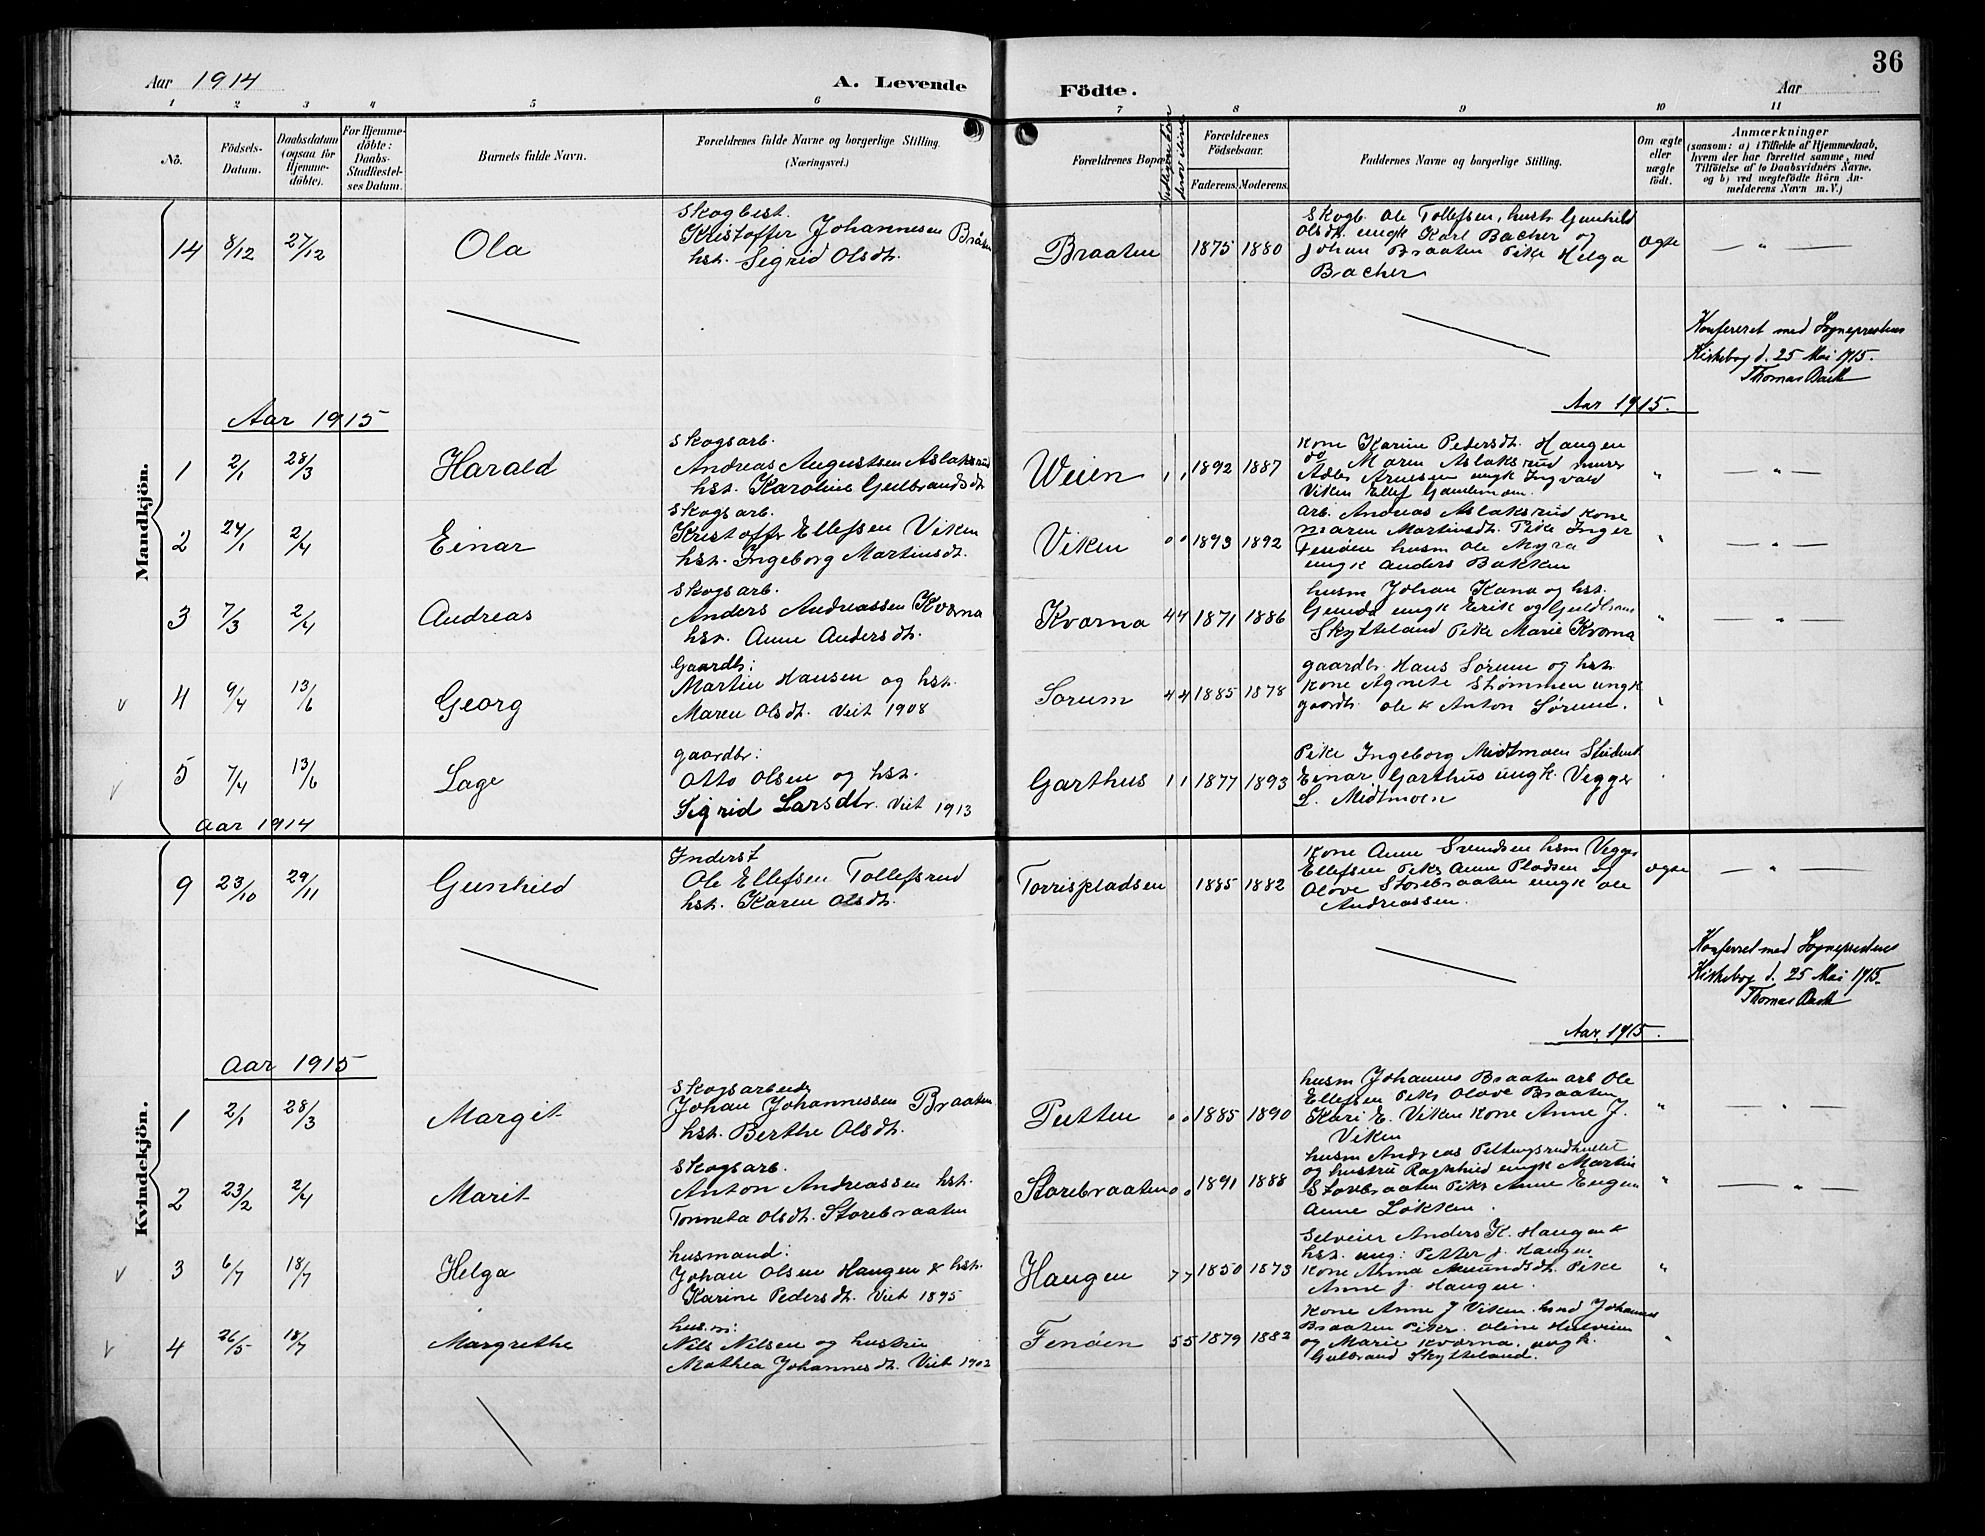 36
Aar 1914
A. Levende Födte.
Aar
1 2 3 4 5 6 7 8 9 10 11
No.
Födsels-Datum.
Daabsdatum (ogsaa for Hjemme-döbte).
For Hjemme-döbte: Daabs-Stadfæstel-ses Datum.
Barnets fulde Navn.
Forældrenes fulde Navne og borgerlige Stilling. (Næringsvei.)
Forældrenes Bopæl
Forældrenes Födselsaar.
Faderens. Moderens.
Faddernes Navne og borgerlige Stilling.
Om ægte eller uægte födt.
Anmærkninger
(saasom: a) i Tilfælde af Hjemmedaab, hvem der har forrettet samme, med Tilföielse af to Daabsvidners Navne, og b) ved uægtefödte Börn An-melderens Navn m. V.)
Mandkjön.
14 8/12 27/12 Ola
Skogbest.
Kristoffer Johannesen Bråten
hst. Sigrid Olsdt.
Braaten 1875 1880
Skogb. Ole Tollefsen, hustr Gunhild
Olsdt. ungk Karl Bacher og
Johan Braaten Pike Helga
Bacher
ægte — " —
Konfereret med Sogneprestens
Kirkebog d. 25 Mai 1915.
Thomas Back
Aar 1915
Aar 1915.
1 2/1 28/3 Harald
Skogsarb.
Andreas Augustsen Aslaksrud
hst. Karoline Gulbrandsdt
Weien 1 1 1892 1887
Kone Karine Pedersdt. Haugen
do Maren Aslaksrud
Arnesen ungk Ingvald
Viken Ellef
" — " —
2 24/1 2/4 Einar
Skogsarb.
Kristoffr Ellefsen Viken
hst. Ingeborg Martinsdt.
Viken 0 0 1893 1892
arb. Andreas Aslaksrud Kone
Maren Martinsdt. Pike Inger
Fenöen husm Ole Myra
ungk Anders Bakken
" — " —
3 7/3 2/4 Andreas
Skogsarb.
Anders Andreassen Kværna
hst. Anne Andersdt.
Kværna 4 4 1871 1886
husm Johan Kana og hst.
Gunda ungk Erik og Guldbran
Skytteland Pike Marie Kværna
" — " —
v 4 9/4 13/6 Georg
Gaardbr:
Martin Hansen og hst.
Maren Olsdt. Viet 1908
Sorum 4 4 1885 1878
gaardbr. Hans Sørum og hst.
Kone Agnete Strømmen ungk
gaardbr. Ole & Anton Sørum.
v 5 7/4 13/6 Lage
gaardbr:
Otto Olsen og hst.
Sigrid Larsdtr. Viet 1913
Garthus 1 1 1877 1893
Pike Ingeborg Midtmoen Student
Einar Garthus ungk. Vegger
L. Midtmoen
Aar 1914
Kvindekjön.
9 23/10 29/11 Gunhild
Inderst
Ole Ellefsen Tollefsrud
hst. Karen Olsdt.
Torrispladsen 1885 1882
Kone Anne Svendsen hsm Vegger
Ellefsen Pike Anne Pladsen og
Olove Storebraaten ungk Ole
Andreassen.
ægte — " —
Konferret med Sogneprestens
Kirkebog d. 25 Mai 1915.
Thomas Back
Aar 1915
Aar 1915.
1 2/1 28/3 Margit
Skogsarbeider
Johan Johannessen Braaten
hst. Berthe Olsdt.
Putten 0 0 1885 1890
husm Johannes Braaten arb Ole
Ellefsen Pike Olove Braaten
Kari E. Viken Kone Anne J.
Viken
" — " —
2 23/2 2/4 Marit
Skogsarb.
Anton Andreassen hst.
Tonneta Olsdt. Storebraaten
Storebraaten 0 0 1891 1888
husm Andreas
og hustru Ragnhild ungk Martin
Storebraaten Pike Anne Engen
Anne Løkken.
" — " —
v 3 6/7 18/7 Helga
husmand:
Johan Olsen Haugen & hst.
Karine Pedersdt. Viet 1895
Haugen 7 7 1850 1873
Selveier Anders K. Haugen &
hst. ung: Petter J. Haugen
Kone Anna Amundsdt. Pike
Anne J. Haugen.
"
v 4 26/5 18/7 Margrethe
husm:
Nils Nilsen og hustru
Mathea Johannesdt. Viet 1902
Fenöen 5 5 1879 1882
Kone Anne J Viken. husd Johannes
Braaten Piker. Oline
og Marie Kværna. ungk.
Gulbrand Skytteland.
"